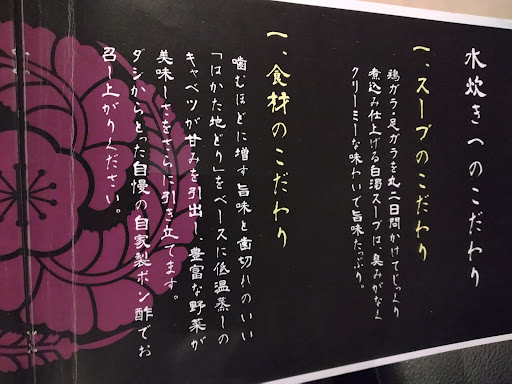 水炊きへのこだわり
一、スープのこだわり
鶏ガラ・足ガラを丸二日間かけてじっくり
煮込み仕上げる白湯スープは、臭みがなく
クリーミーな味わいで旨味たっぷり。
一、食材のこだわり
噛むほどに増す旨味と歯切れのいい
「はかた地どり」をベースに低温蒸しの
キャベツが甘みを引出し、豊富な野菜が
美味しさをさらに引き立てます。
ダシからとった自慢の自家製ポン酢でお
召し上がりください。